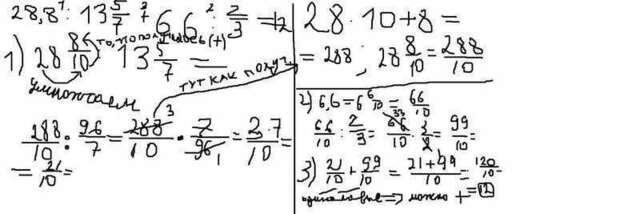 28,8 : 13 5/7 + 6,6 : 2/3 = 12
1) 28 8/10 : 13 5/7 =
умножаем
тут как получ.
288/10 : 96/7 = 288/10 · 7/96 = 3·7/10 =
= 21/10 =
28 · 10 + 8 =
= 288 ; 28 8/10 = 288/10
2) 6,6 = 6 6/10 = 66/10
66/10 : 2/3 = 66/10 · 3/2 = 99/10 =
3) 21/10 + 99/10 = 21+99/10 = 120/10 = 12
одинаковые => можно +